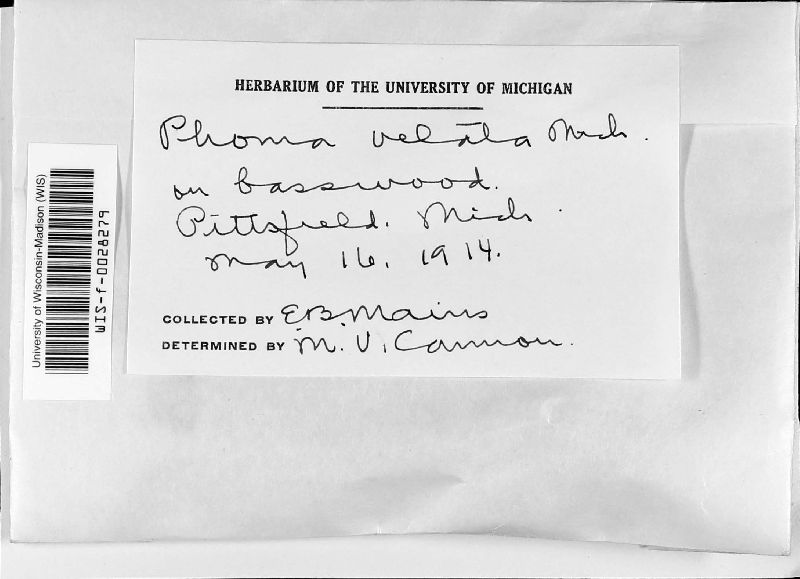 HERBARIUM OF THE UNIVERSITY OF MICHIGAN
Phoma velata Mich.
on basswood.
Pittsfield. Mich.
May 16, 1914.
COLLECTED BY E.B. Mains
DETERMINED BY M. V. Cannon.
University of Wisconsin-Madison (WIS)
WIS-f-0028279